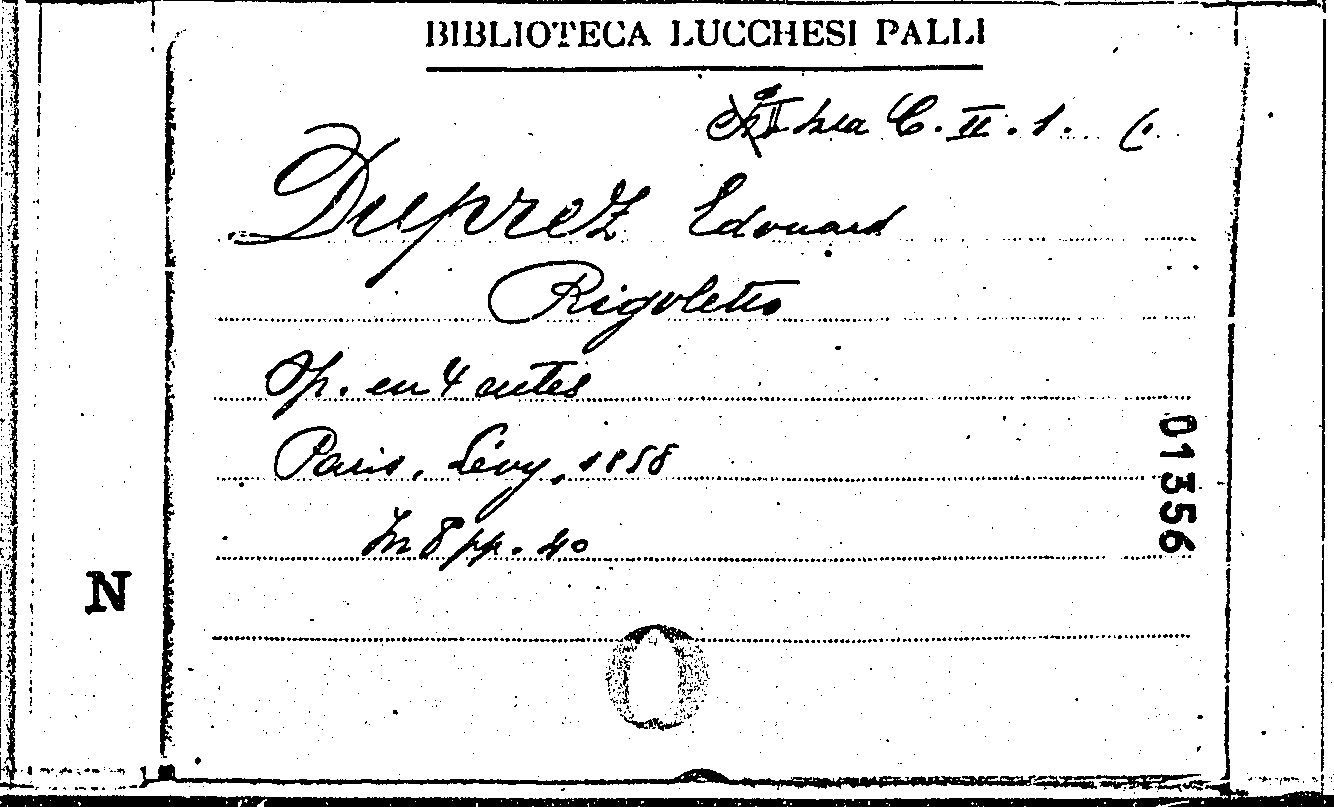 BIBLIOTECA LUCCHESI PALLI
C. II. 1. (.
Duprez Edouard
Rigoletto
Op. en 4 actes
Paris, Lévy, 1858
In 8 pp. 40
01356
N